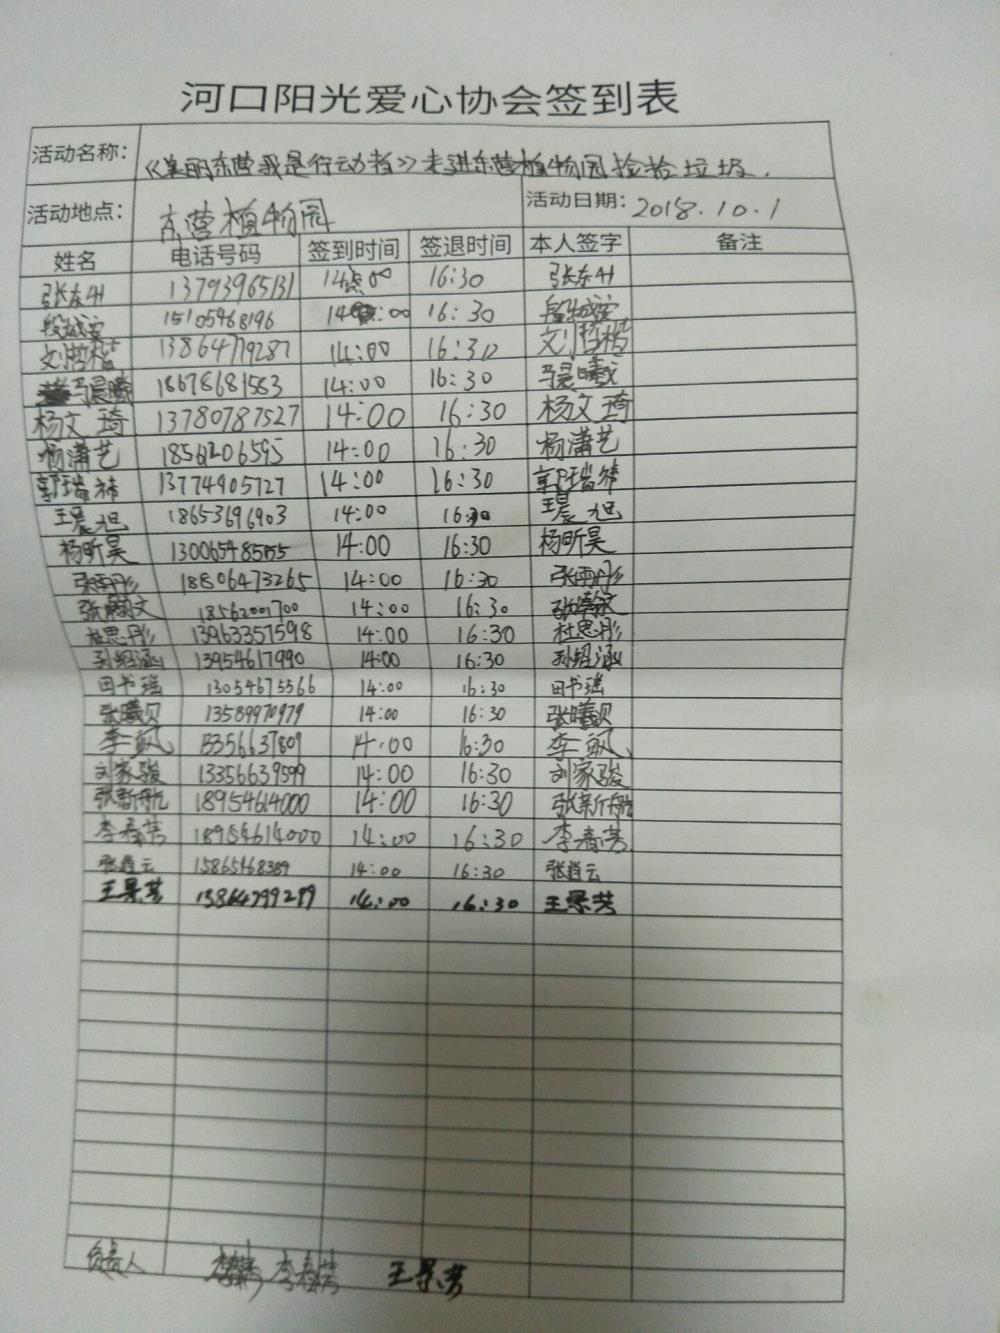 河口阳光爱心协会签到表
活动名称: 《美丽东营我是行动者》走进东营植物园捡拾垃圾.
活动地点: 东营植物园 活动日期: 2018.10.1
姓名 电话号码 签到时间 签退时间 本人签字 备注
张东 13793965131 14:00 16:30 张东
15105468196 14:00 16:30
刘哲楷 13864779287 14:00 16:30 刘哲楷
马晨曦 18678681583 14:00 16:30 马晨曦
杨文琦 13780787527 14:00 16:30 杨文琦
杨潇艺 18561206595 14:00 16:30 杨潇艺
郭瑞 13774905727 14:00 16:30 郭瑞
王晨旭 18653696903 14:00 16:30 王晨旭
杨昕昊 14:00 16:30 杨昕昊
张雨彤 18806473265 14:00 16:30 张雨彤
张 文 18562001700 14:00 16:30 张
杜思彤 13963357598 14:00 16:30 杜思彤
孙 涵 13954617990 14:00 16:30 孙 涵
田书瑶 13054675566 14:00 16:30 田书瑶
张曦贝 13589970979 14:00 16:30 张曦贝
李飒 13356637809 14:00 16:30 李飒
刘家骏 13356639599 14:00 16:30 刘家骏
张新航 18954614000 14:00 16:30 张新航
李春芳 18954614000 14:00 16:30 李春芳
张道云 15865468389 14:00 16:30 张道云
王景芳 14:00 16:30 王景芳
负责人 李春芳 王景芳